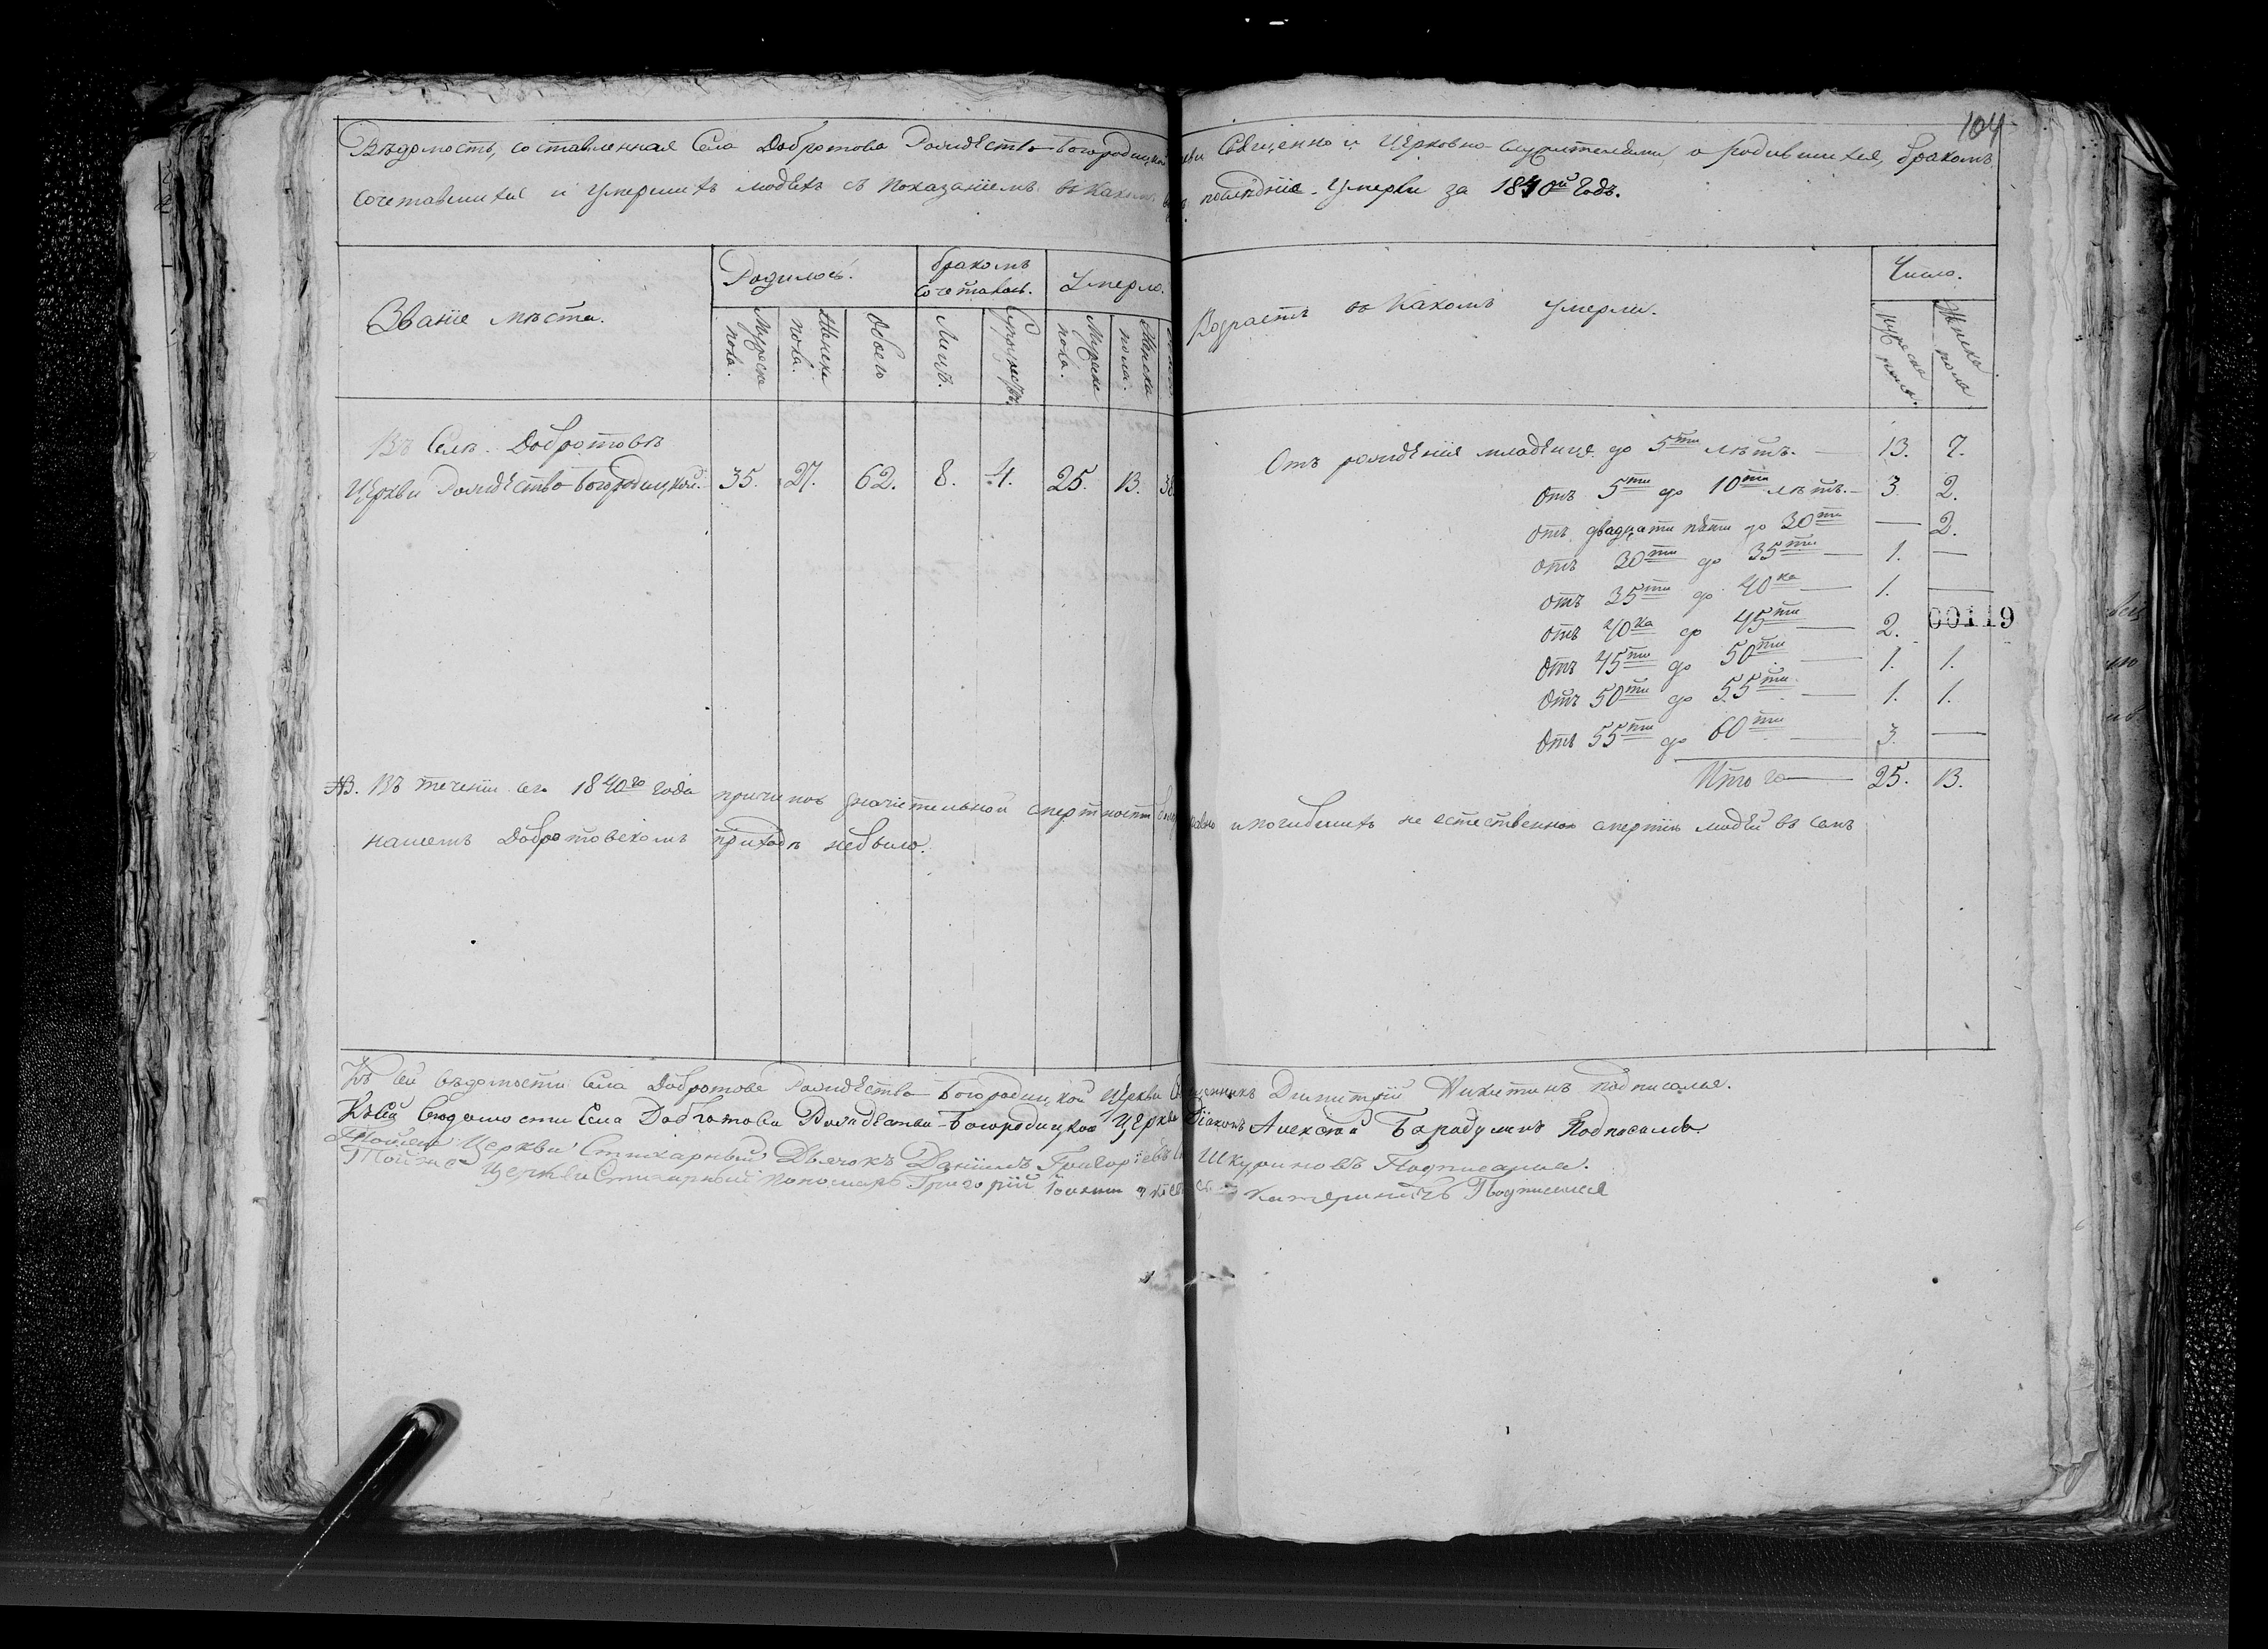 104
Вѣдомость, составленная Села Добротова Рождество-Богородицкой Священно и Церковно-служителями, о родившихся, бракомъ
сочетавшихся и умершихъ людѣхъ съ показанiемъ въ какихъ последнiе умерли за 1840й Годъ.
Званiе мѣста.
Родилось.
бракомъ сочеталось.
Умерло.
Возрастъ въ какомъ умерли.
Число.
Мужеска пола.
Женска пола.
Обоего
Лицъ.
Супружествъ.
Мужска пола.
Женска пола.
Мужеска пола.
Женска пола
Въ Селѣ Добротовѣ
Церкви Рождество-Богородицкой. 35. 27. 62. 8. 4. 25. 13. 38
Отъ рожденiя младенца до 5ти лѣтъ. — 13. 7.
Отъ 5ти до 10ти лѣтъ. — 3. 2.
Отъ двадцати пяти до 30ти — 2.
Отъ 30ти до 35ти — 1. —
Отъ 35ти до 40ка — 1. —
Отъ 40ка до 45ти — 2.
00119
Отъ 45ти до 50ти — 1. 1.
Отъ 50ти до 55ти — 1. 1.
Отъ 55ти до 60ти — 3. —
Итого — 25. 13.
NB. Въ теченiи сего 1840го года причинъ значительной смертности и погибшихъ не естественною смертiю людей въ семъ
нашемъ Добротовскомъ приходѣ небыло.
Къ сей вѣдомости Села Добротова Рождество Богородицкой Церкви Священникъ Димитрiй Никитинъ подписался.
Къ сей Вѣдомости Села Добротова Рождества-Богородицкой Церкви Дiаконъ Алексѣй Барадулинъ Подписался.
Тойже Церкви Стихарный Дьячокъ Данiилъ Григорiевъ Шкуриновъ Подписался.
Тойже Церкви Стихарный пономарь Григорiй Подписался